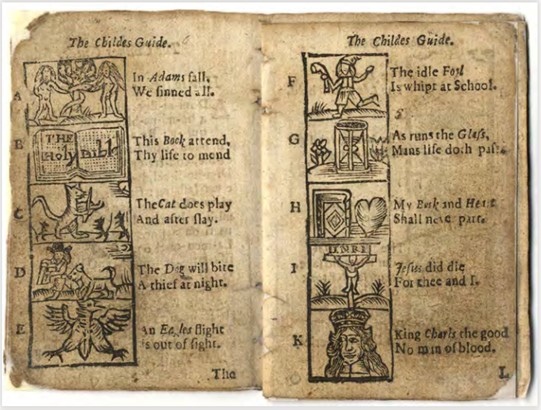 The Childes Guide. 6
A
In Adams fall,
We sinned all.
B
THE
Holy Bible
This Book attend,
Thy life to mend
C
The Cat does play
And after slay.
D
The Dog will bite
A thief at night.
E
An Eagles flight
Is out of sight.
The
The Childes Guide.
F
The idle Fool
Is whipt at School.
G
As runs the Glass,
Mans life doth pass.
H
My Book and Heart
Shall neve part.
I
INRI
Jesus did die
For thee and I.
K
King Charls the good
No man of blood.
L